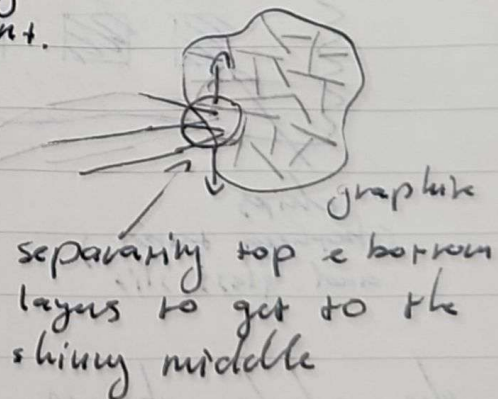 nt.
graphite
separating top & bottom
layers to get to the
shiny middle